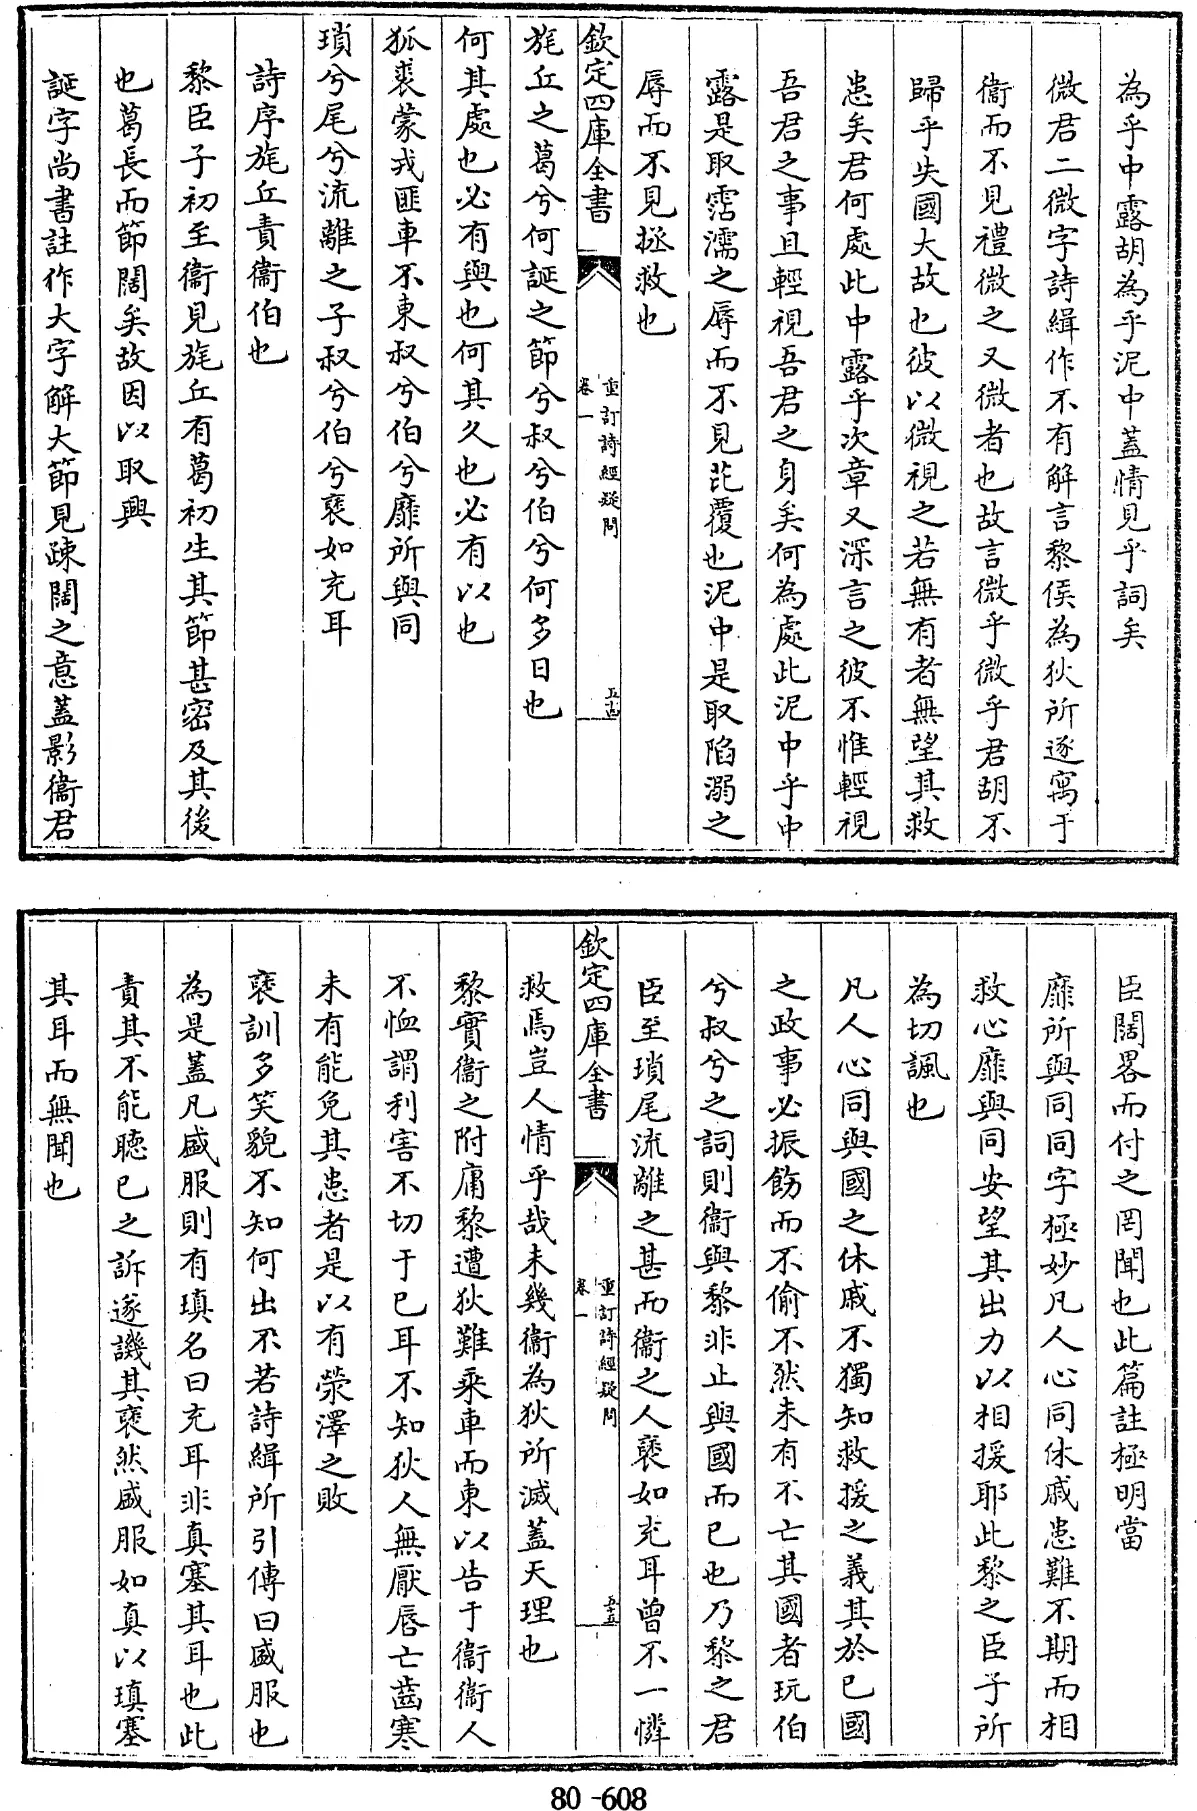 為乎中露胡為乎泥中蓋情見乎詞矣
微君二微字詩緝作不有解言黎侯為狄所逐寓于
衞而不見禮微之又微者也故言微乎微乎君胡不
歸乎失國大故也彼以微視之若無有者無望其救
患矣君何處此中露乎次章又深言之彼不惟輕視
吾君之事且輕視吾君之身矣何為處此泥中乎中
露是取霑濡之辱而不見芘覆也泥中是取陷溺之
辱而不見拯救也
欽定四庫全書
重訂詩經疑問
卷一
五十四
旄丘之葛兮何誕之節兮叔兮伯兮何多日也
何其處也必有與也何其久也必有以也
狐裘蒙戎匪車不東叔兮伯兮靡所與同
瑣兮尾兮流離之子叔兮伯兮褎如充耳
詩序旄丘責衞伯也
黎臣子初至衞見旄丘有葛初生其節甚密及其後
也葛長而節闊矣故因以取興
誕字尚書註作大字解大節見疎闊之意蓋影衞君
臣闊畧而付之罔聞也此篇註極明當
靡所與同同字極妙凡人心同休戚患難不期而相
救心靡與同安望其出力以相援耶此黎之臣子所
為切諷也
凡人心同與國之休戚不獨知救援之義其於已國
之政事必振飭而不偷不然未有不亡其國者玩伯
兮叔兮之詞則衞與黎非止與國而已也乃黎之君
臣至瑣尾流離之甚而衞之人褎如充耳曾不一憐
欽定四庫全書
重訂詩經疑問
卷一
五十五
救焉豈人情乎哉未幾衞為狄所滅蓋天理也
黎實衞之附庸黎遭狄難乘車而東以告于衞衞人
不恤謂利害不切于已耳不知狄人無厭唇亡齒寒
未有能免其患者是以有滎澤之敗
褎訓多笑貌不知何出不若詩緝所引傳曰盛服也
為是蓋凡盛服則有瑱名曰充耳非真塞其耳也此
責其不能聽已之訴遂譏其褎然盛服如真以瑱塞
其耳而無聞也
80-608